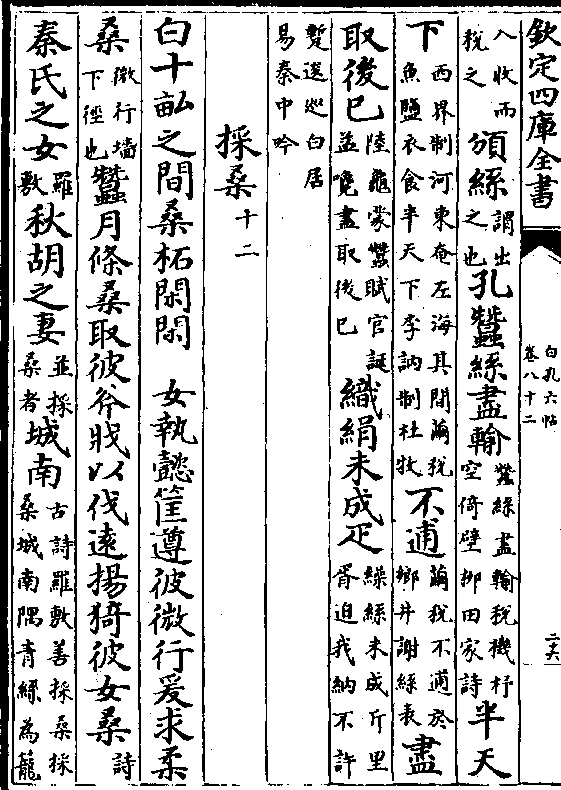 欽定四庫全書
白孔六帖
卷八十二
二六
入收而税之頒絲謂出之也孔蠶絲盡輸蠶絲盡輸税機杼空倚壁柳田家詩半天
下西界制河東奄左海其間繭税魚鹽衣食半天下李訥制杜牧不逋繭税不逋於鄉井謝絲表盡
取後已陸龜蒙蠶賦官誕益嚵盡取後已織絹未成疋繰絲未成斤里胥迫我納不許
蹔逡巡白居易秦中吟
採桑十二
白十畝之間桑柘閑閑 女執懿筐遵彼微行爰求柔
桑微行墻下徑也蠶月條桑取彼斧戕以伐遠揚猗彼女桑詩
秦氏之女羅敷秋胡之妻並採桑者城南古詩羅敷善採桑採桑城南隅青絲為籠